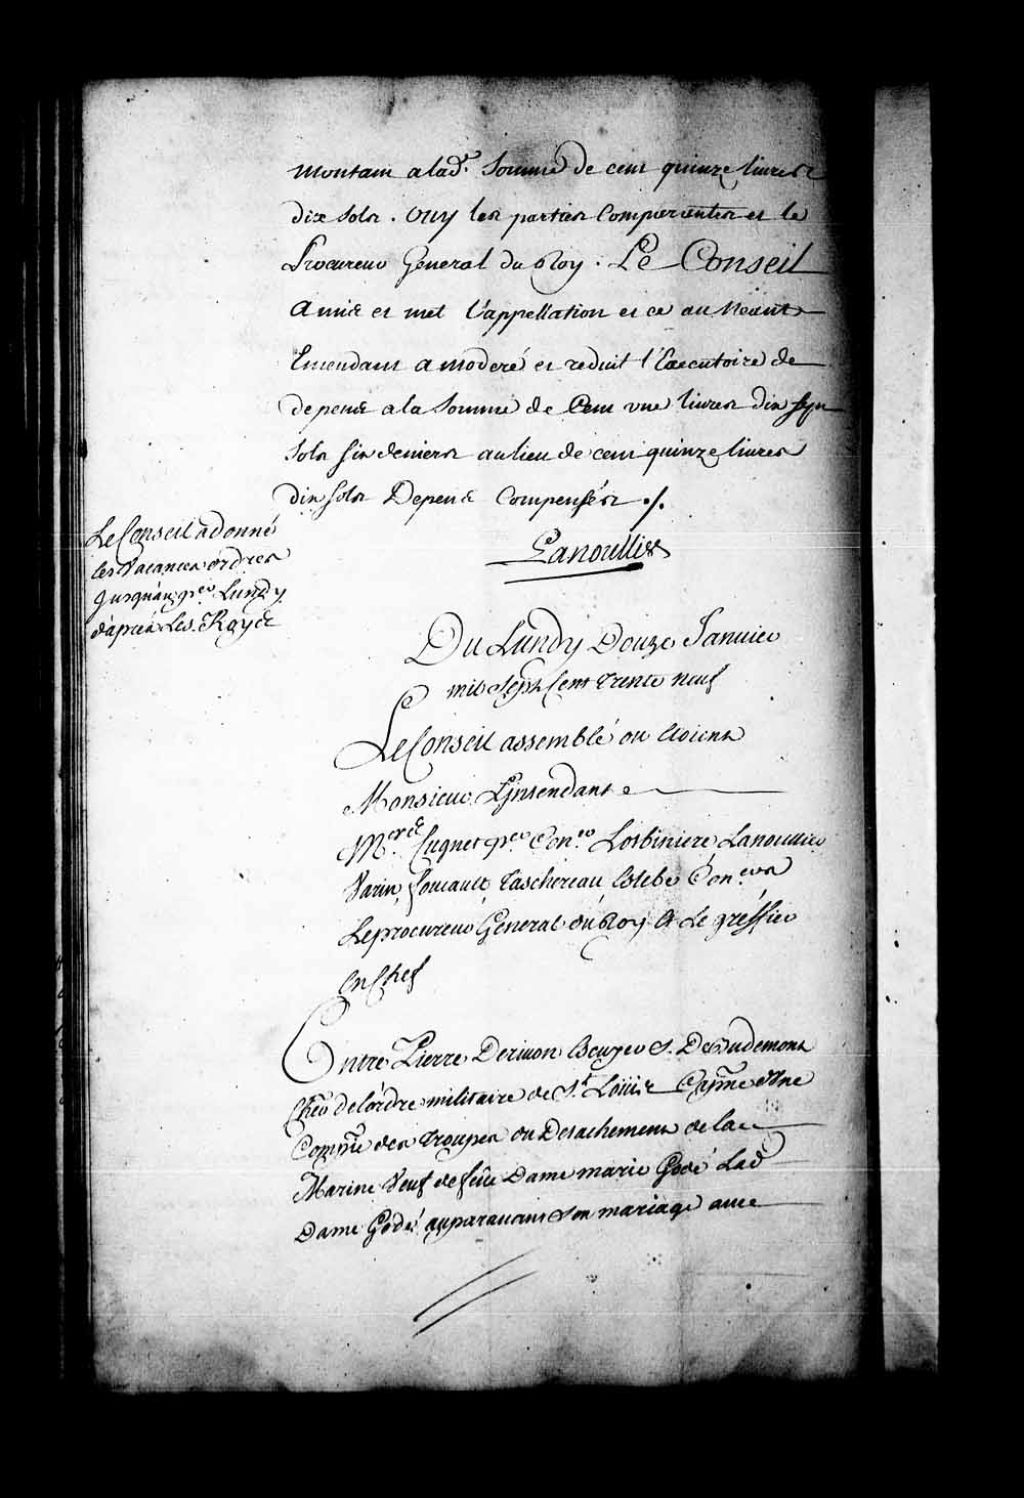 montant a lad.e Somme de cent quinze livres
dix Sols. Ouy les parties Comparantes et le
Procureur General du Roy. Le Conseil
a mis et met l'appellation et ce au Neant
Emendant a moderé et reduit l'Executoire de
depens a la Somme de Cent une livres dix sept
Sols six deniers au lieu de cent quinze livres
dix Sols Depens Compensés ./.
Lanoullier
Le Conseil a donné
les Vacances ordres
Jusquau pr.er Lundy
d'après Les Roys
Du Lundy Douze Janvier
mil Sept Cent trente neuf
Le Conseil assemblé ou Etoient
Monsieur L'Intendant
M.ers Cugnet p.er Con.er Lotbiniere Lanoullier
Varin, foucault Taschereau Estebe Con.ers
Le procureur General du Roy Et Le greffier
En Chef
Entre Pierre Derivon Ecuyer S. De Budemont
Ch.er de l'ordre militaire de S.t Loüis Cap.ne d'Une
Comp.nie des Troupes du Detachement de la
Marine Veuf de feüe Dame marie Godé Lad.
Dame Godé auparavant Son mariage avec